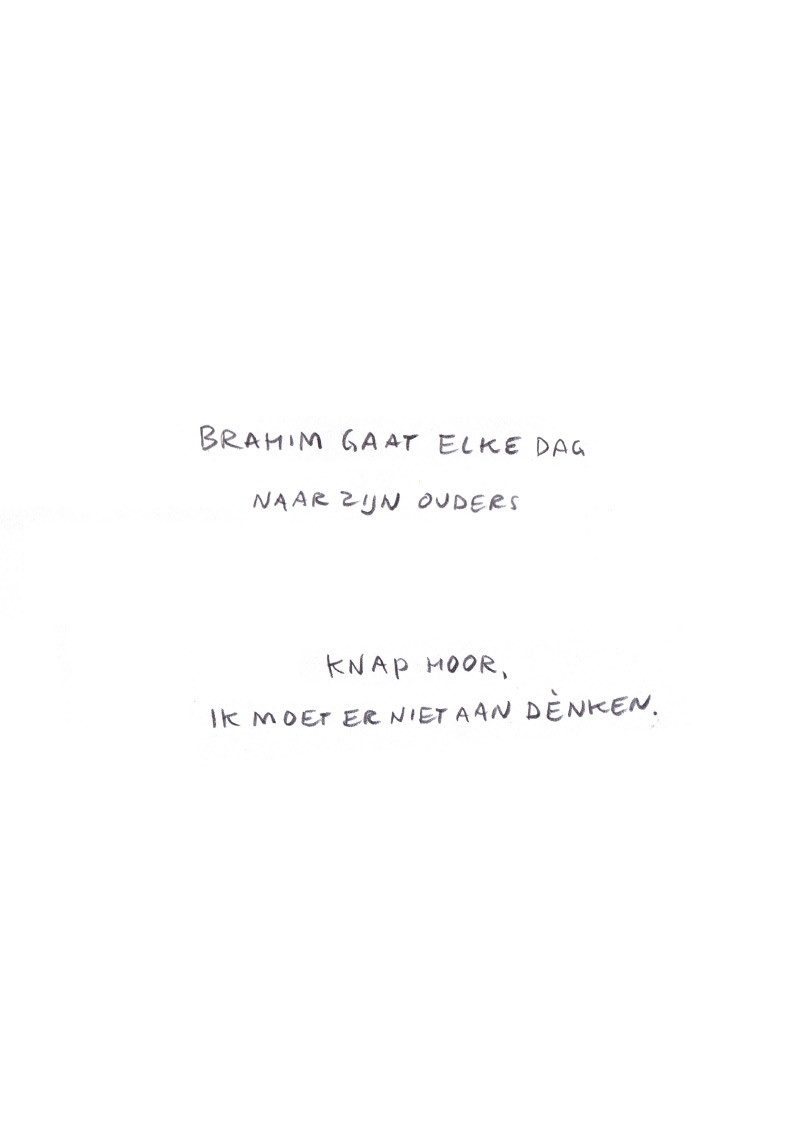 BRAHIM GAAT ELKE DAG
NAAR ZIJN OUDERS
KNAP HOOR,
IK MOET ER NIET AAN DÈNKEN.